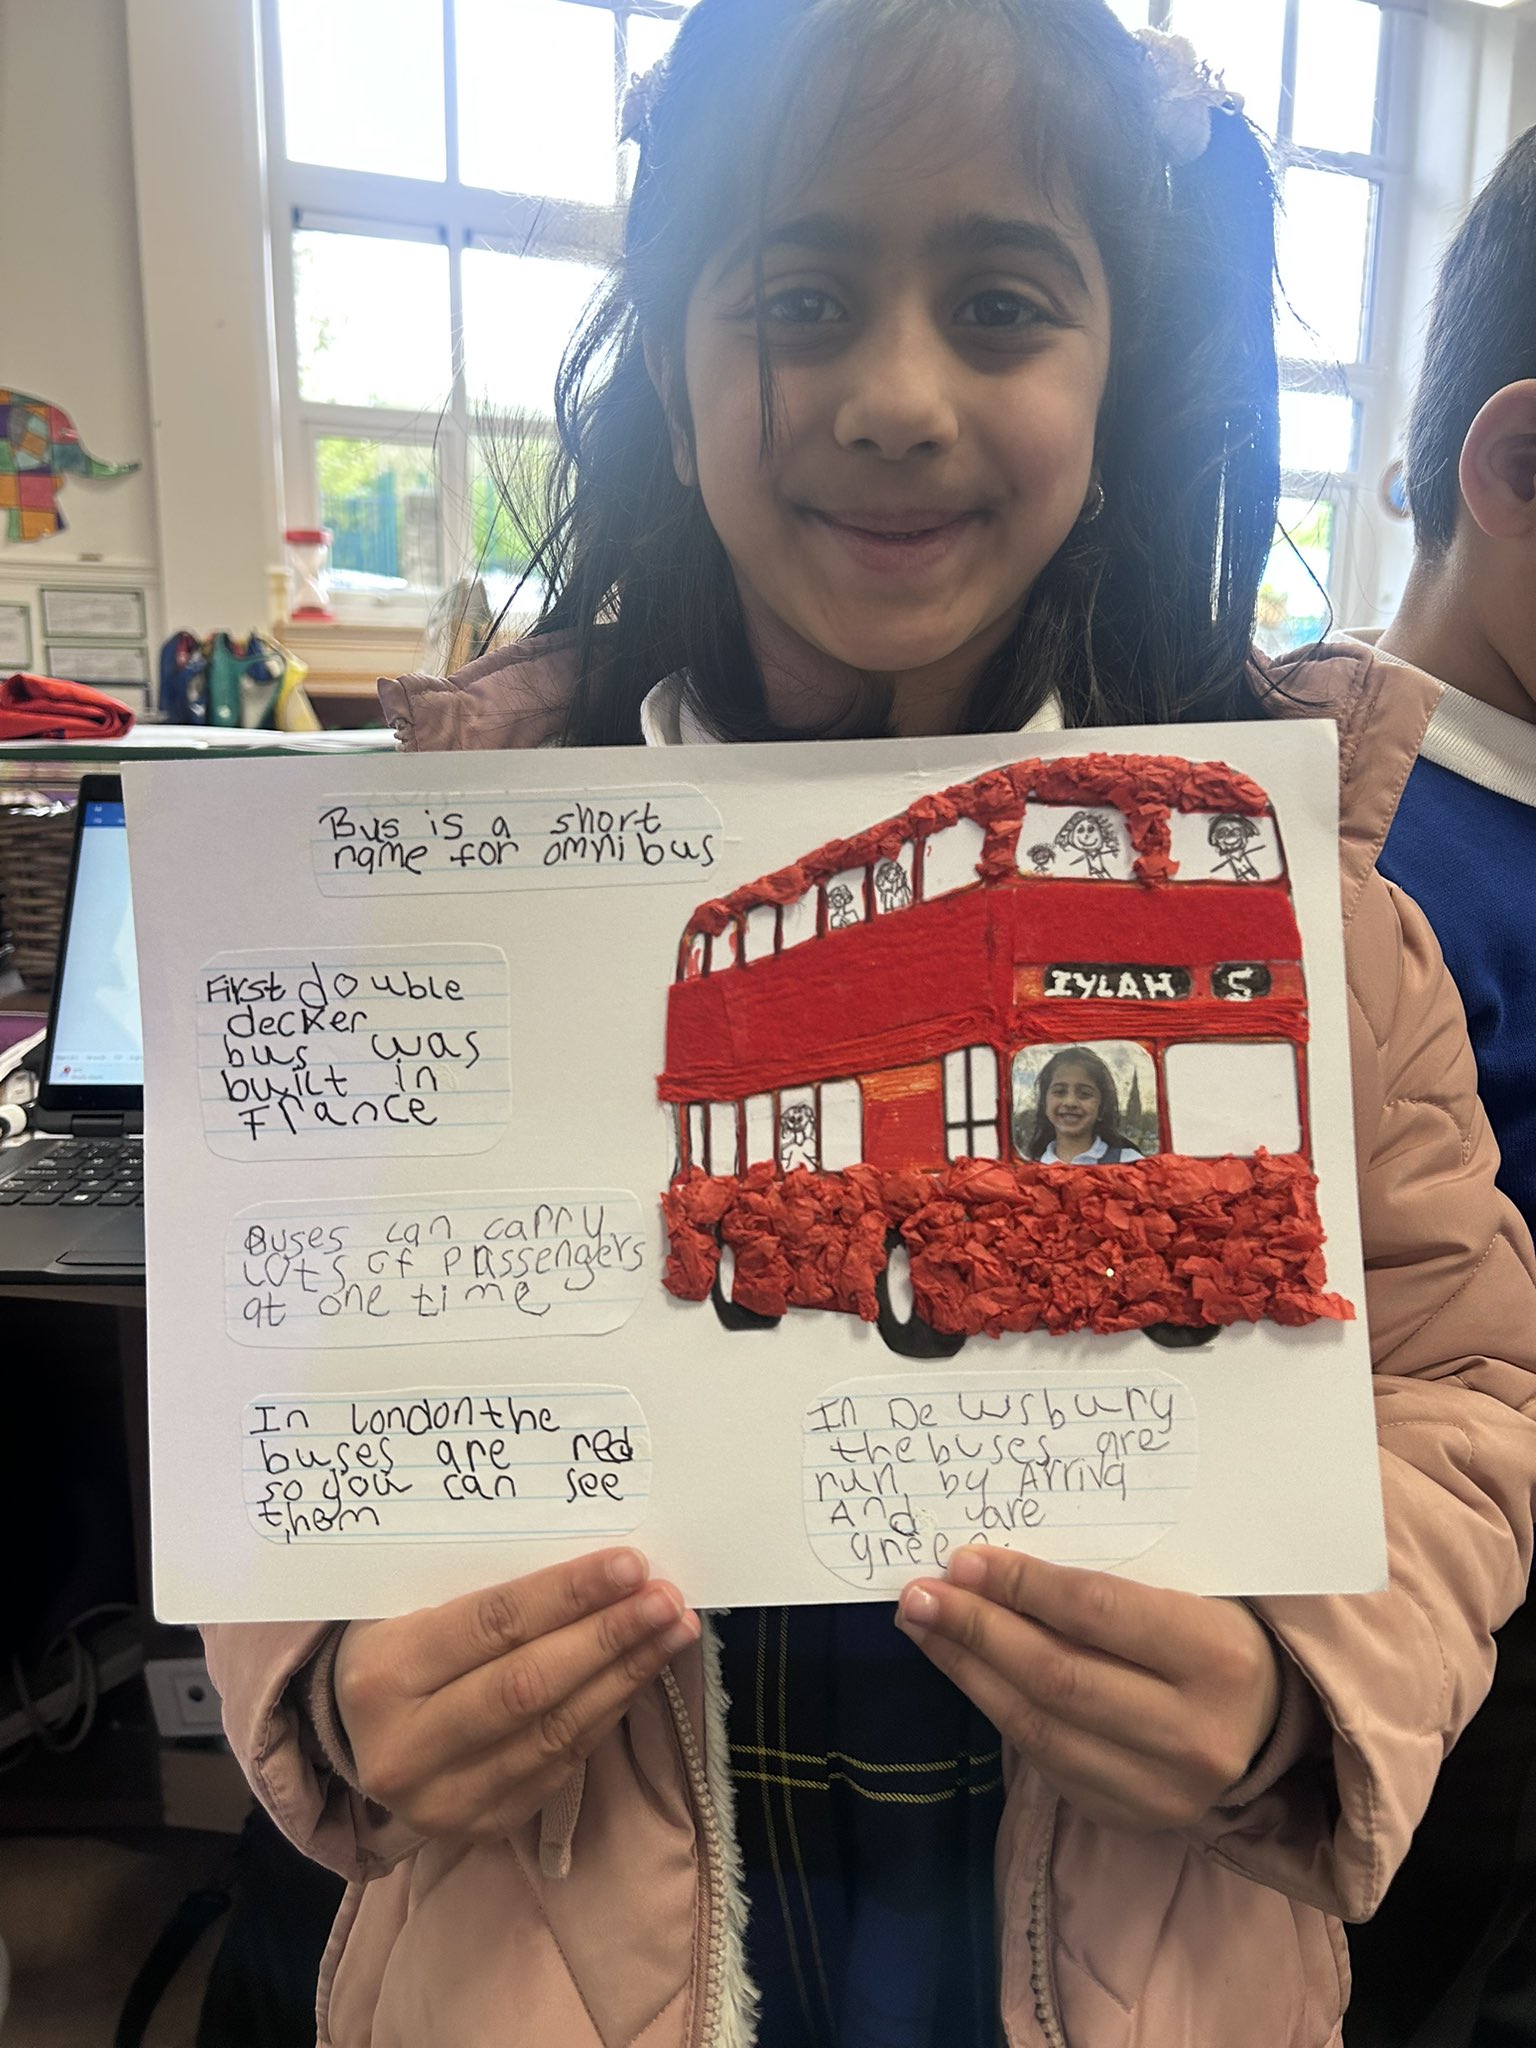 Bus is a short
name for omnibus
First double
decker
bus was
built in
France
Buses can carry
lots of passengers
at one time
In London the
buses are red
so you can see
them
IYLAH 5
In Dewsbury
the buses are
run by Arriva
And are
green.